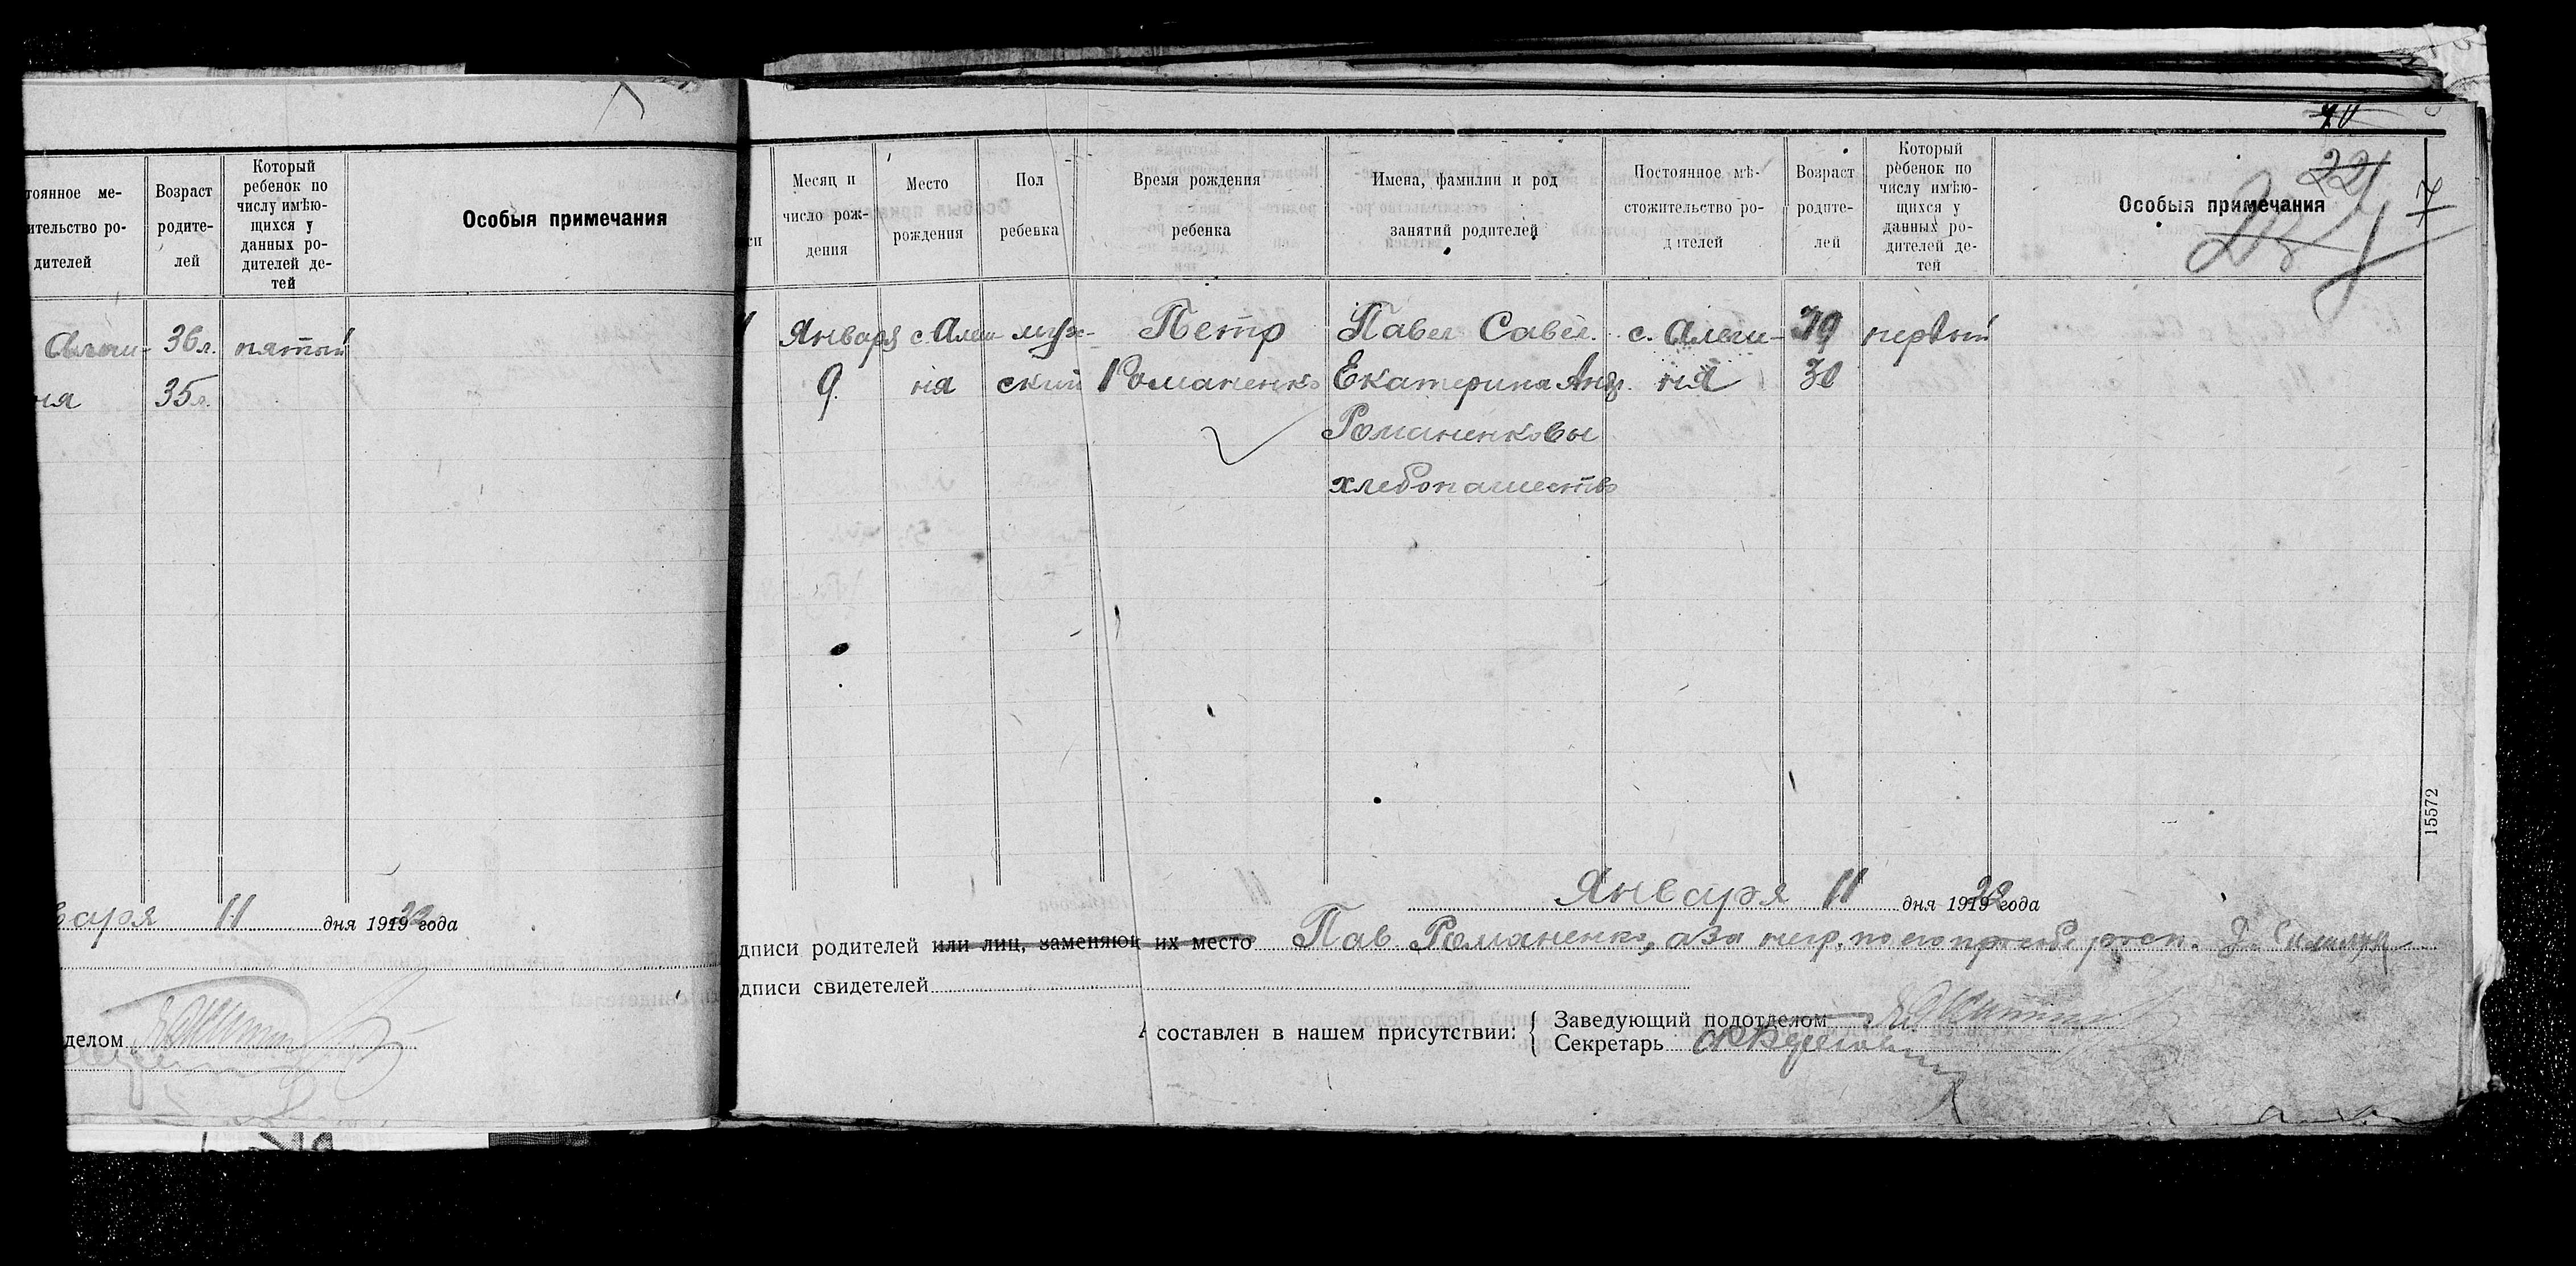 тоянное ме-
ительство ро-
дителей
Возраст
родите-
лей
Который
ребенок по
числу имѣю-
щихся у
данных ро-
дителей де-
тей
Особыя примечания
36 л. пятый
ня 35 л.
варя 11 дня 1919 22 года
делом
40
22
7
си
Месяц и
число рож-
дения
Место
рождения
Пол
ребенка
Время рождения
ребенка
Имена, фамилии и род
занятий родителей
Постоянное мѣ-
стожительство ро-
дителей
Возраст
родите-
лей
Который
ребенок по
числу имѣю-
щихся у
данных ро-
дителей де-
тей
Особыя примечания
Января с. Алеш- муж- Петр Павел Савел. с. Алеши- 39 первый
9. ня ский Романенко Екатерина Анд. ня 30
Романенковы
хлебопашество
15572
Января 11 дня 1919 22 года
дписи родителей или лиц, заменяющ их место Пав Романенко, а за негр. по его просьбе росп.
дписи свидетелей
А составлен в нашем присутствии:
Заведующий подотделом
Секретарь